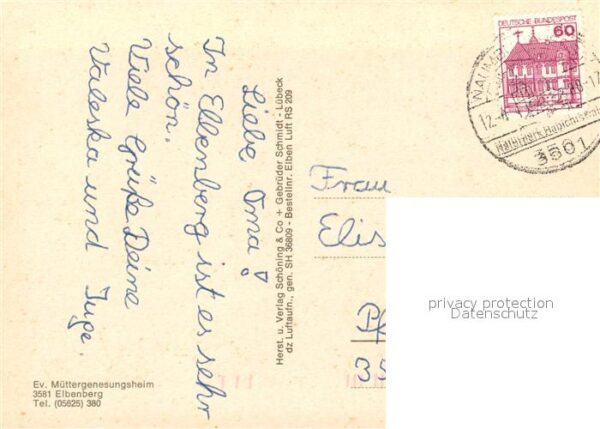 Liebe Oma!
In Elbenberg ist es sehr
schön.
Viele Grüße Deine
Valeska und Inge.
Ev. Müttergenesungsheim
3581 Elbenberg
Tel. (05625) 380
Herst. u. Verlag Schöning & Co + Gebrüder Schmidt - Lübeck
dz Luftaufn., gen. SH 36809 - Bestellnr. Elben Luft RS 209
DEUTSCHE BUNDESPOST
60
3501
Frau
Elis
privacy protection
Datenschutz